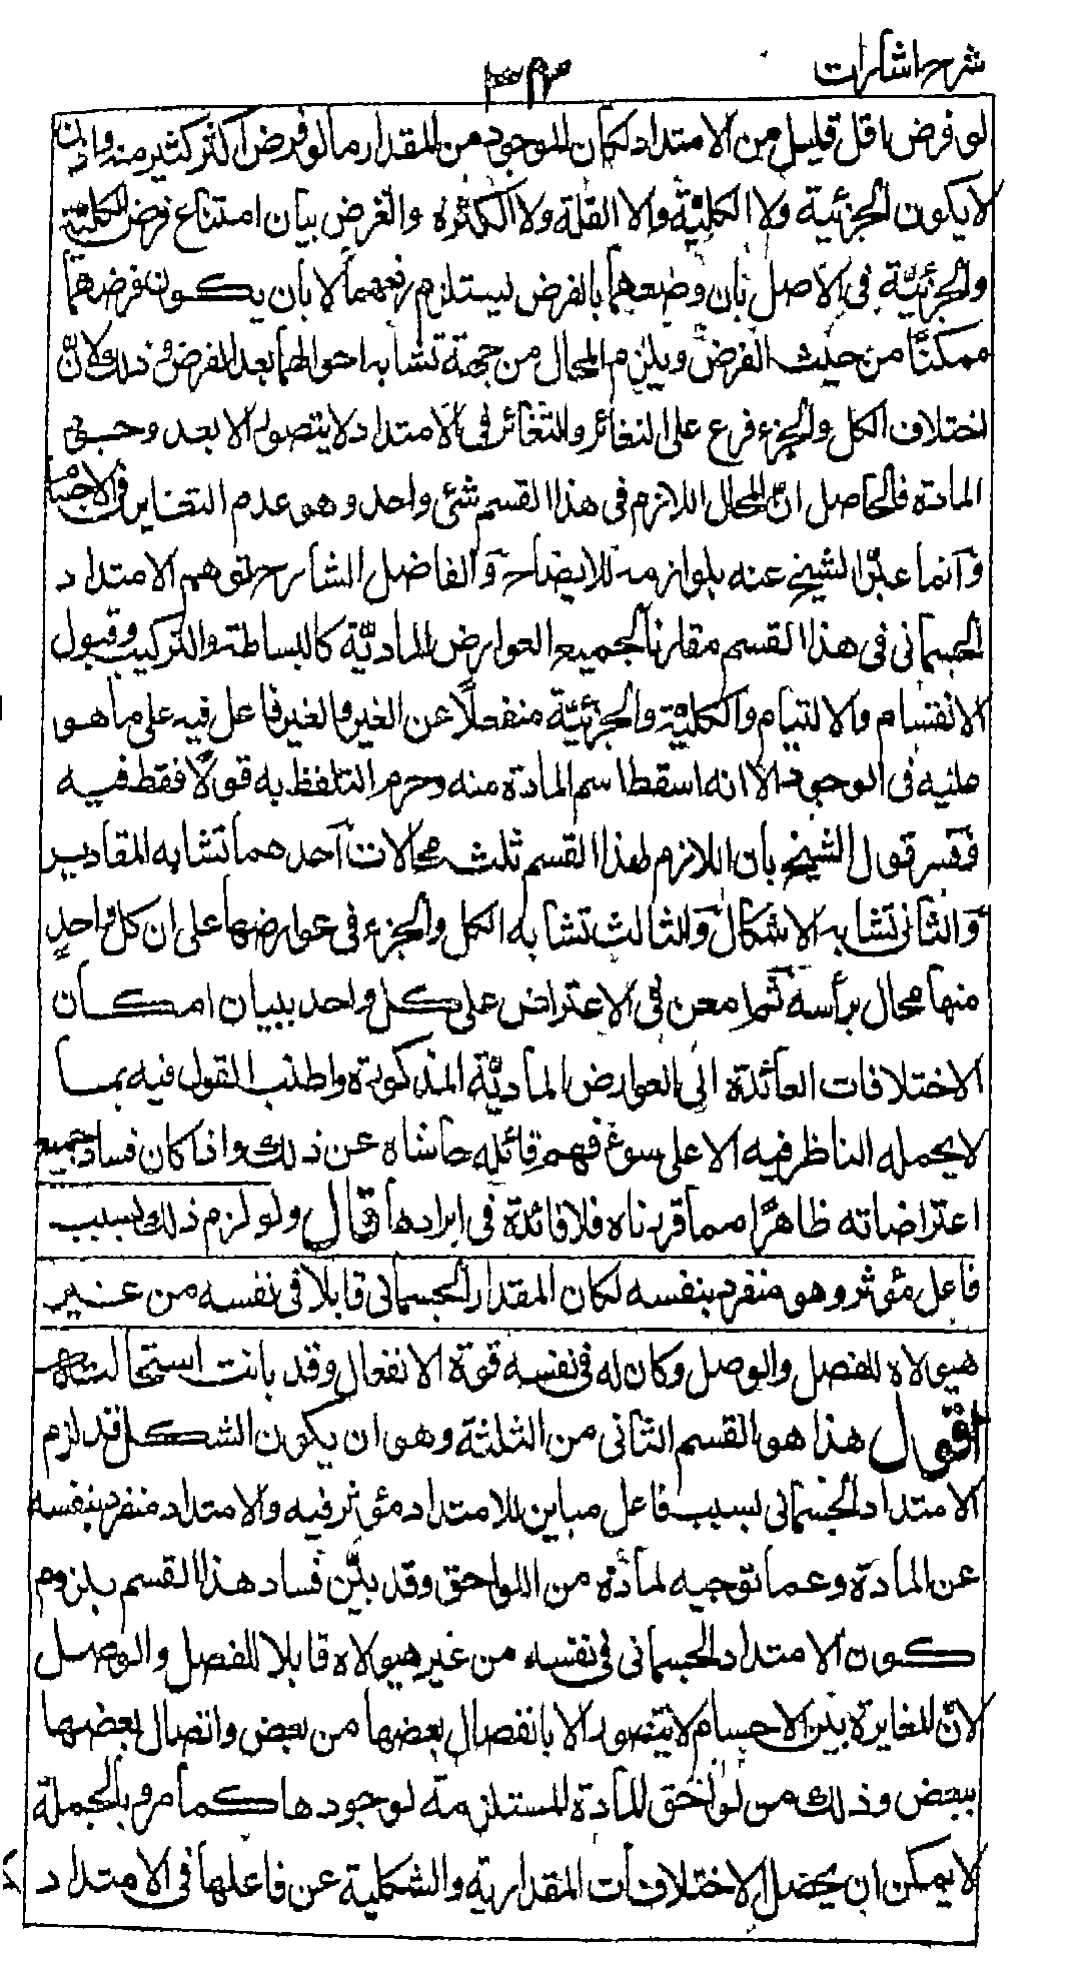 شرح اشارات
٣٤
لو فرض اقل قليل من الامتداد لكان الموجود من المقدار ما لو فرض اكثر كثير منه واذن
لا يكون الجزئية ولا الكلية ولا القلة ولا الكثرة والغرض بيان امتناع فرض الكلية
والجزئية فى الاصل بان وضعهما بالفرض ليستلزم رفعهما لا بان يكون فرضهما
ممكنا من حيث الفرض ويلزم المحال من جهة تشابه احوالهما بعد الفرض وذلك لان
اختلاف الكل والجزء فرع على التغائر والتغائر فى الامتداد لا يتصور الا بعد وجود
المادة فالحاصل ان المحال اللازم فى هذا القسم شئ واحد وهو عدم التغاير فى الاجسام
وانما عبر الشيخ عنه بلوازمه للايضاح والفاضل الشارح توهم الامتداد
الجسمانى فى هذا القسم مقارنا لجميع العوارض المادية كالبساطة والتركيب وقبول
الانقسام والالتيام والكلية والجزئية منفصلا عن الغير والغير فاعل فيه على ما هو
عليه فى الوجود الا انه اسقط اسم المادة منه وحرم التلفظ به قولا فقط فيه
ففسر قول الشيخ بان اللازم لهذا القسم ثلث محالات احدهما تشابه المقادير
والثانى تشابه الاشكال والثالث تشابه الكل والجزء فى عوارضها على ان كل واحد
منها محال برأسه ثم امعن فى الاعتراض على كل واحد ببيان امكان
الاختلافات العائدة الى العوارض المادية المذكورة واطنب القول فيه بما
لا يحمله الناظر فيه الا على سوء فهم قائله حاشاه عن ذلك واذا كان فساد جميع
اعتراضاته ظاهرا مما قررناه فلا فائدة فى ايرادها قال ولو لزم ذلك بسبب
فاعل مؤثر وهو منفرد بنفسه لكان المقدار الجسمانى قابلا فى نفسه من غير
هيولاه للفصل والوصل وكان له فى نفسه قوة الانفعال وقد بانت استحالته
اقول هذا هو القسم الثانى من الثلثة وهو ان يكون الشكل قد لزم
الامتداد الجسمانى بسبب فاعل مباين للامتداد مؤثر فيه والامتداد منفرد بنفسه
عن المادة وعما توجبه المادة من اللواحق وقد بين فساد هذا القسم بلزوم
كون الامتداد الجسمانى فى نفسه من غير هيولاه قابلا للفصل والوصل
لان المغايرة بين الاجسام لا يتصور الا بانفصال بعضها من بعض واتصال بعضها
ببعض وذلك من لواحق المادة المستلزمة لوجودها كما مر وبالجملة
لا يمكن ان يحصل الاختلافات المقدارية والشكلية عن فاعلها فى الامتداد